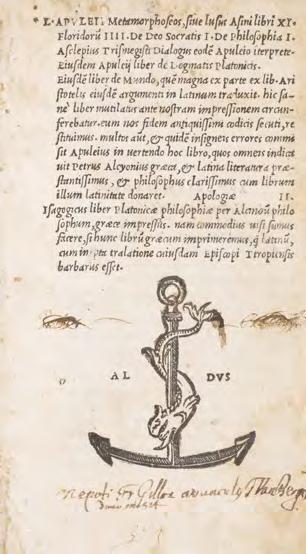 L. APVLEI Metamorphoseos, siue lusus Asini libri XI.
Floridorũ IIII. De Deo Socratis I. De Philosophia I.
Asclepius Trismegisti Dialogus eodẽ Apuleio iterprete.
Eiusdem Apuleij liber de Dogmatis Platonicis.
Eiusdẽ liber de Mundo, quẽ magna ex parte ex lib. Ari
stotelis eiusdẽ argumenti in latinum traduxit. hic sa-
ne liber mutilatur ante nostram impressionem circun-
ferebatur. cum nos fidem antiquissimi codicis secuti, re
stituimus. multos aũt, & quidẽ insigneis errores commi
sit Apuleius in uertendo hoc libro, quos omneis indica
uit Petrus Alcyonius græca, & latina literatura præ-
stantissimus, & philosophus clarissimus cum librum
illum latinitate donaret. Apologiæ II.
Isagogicus liber Platonicæ philosophiæ per Alcinoũ philo
sophum, græce impressus. nam commodius uisi sumus
facere, si hunc librũ græcum imprimeremus, q̃ latinũ,
cum tralatione cuiusdam Episcopi Tropiensis
barbarus esset.
AL DVS
Nepoti